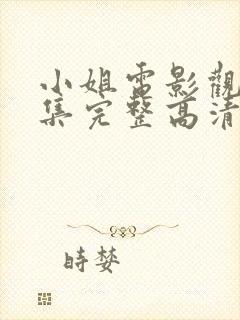 小姐電影觀
集完整高清
時婪